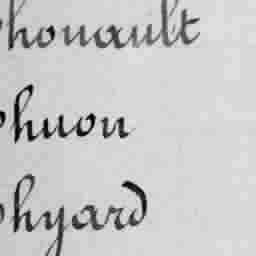 houault
huon
hyard